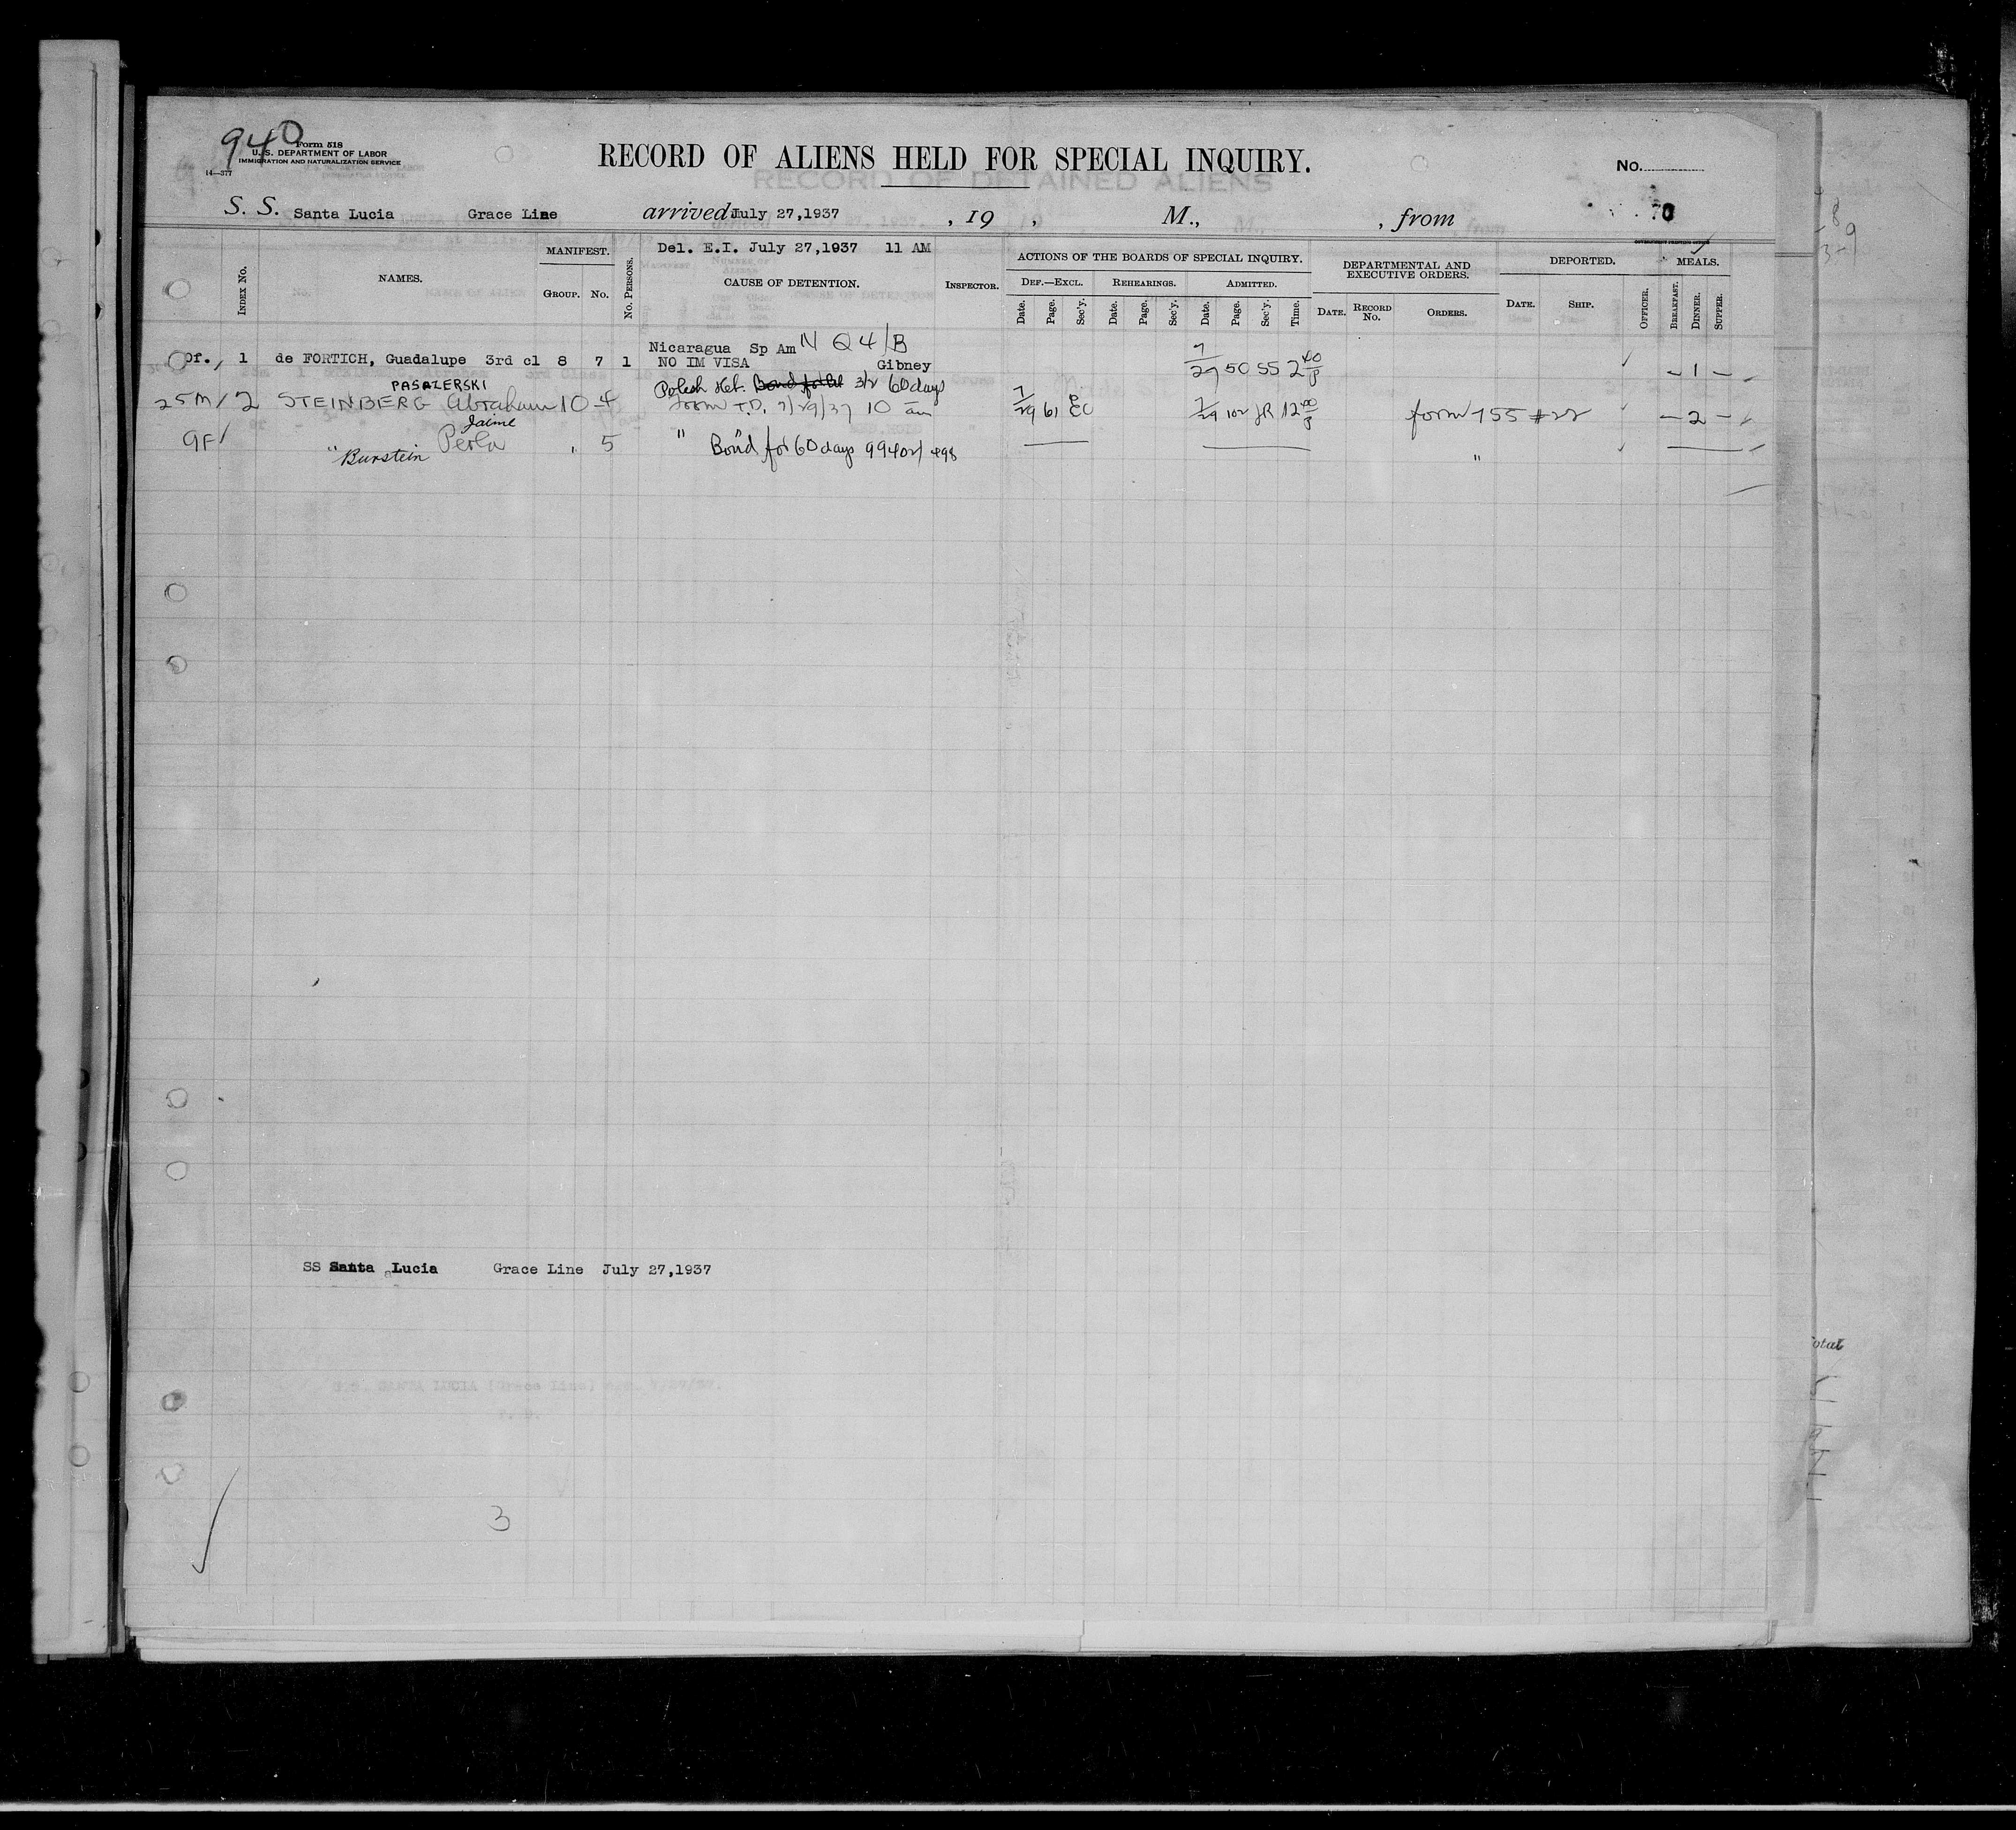 940
Form 518
U. S. DEPARTMENT OF LABOR
IMMIGRATION AND NATURALIZATION SERVICE
14—377
RECORD OF ALIENS HELD FOR SPECIAL INQUIRY.
No.
S. S. Santa Lucia Grace Line arrived July 27,1937 , 19 , M., , from 70
Del. E.I. July 27,1937 11 AM
INDEX NO. NAMES. MANIFEST. GROUP. NO. NO. PERSONS. CAUSE OF DETENTION. INSPECTOR. ACTIONS OF THE BOARDS OF SPECIAL INQUIRY. DEF.—EXCL. Date. Page. Sec'y. REHEARINGS. Date. Page. Sec'y. ADMITTED. Date. Page. Sec'y. Time. DEPARTMENTAL AND EXECUTIVE ORDERS. DATE. RECORD NO. ORDERS. DEPORTED. DATE. SHIP. OFFICER. MEALS. BREAKFAST. DINNER. SUPPER.
Nicaragua Sp Am N Q 4/B
of. 1 de FORTICH, Guadalupe 3rd cl 8 7 1 NO IM VISA Gibney 7/29 50 SS 2 40/P – 1 –
PASAZERSKI Polish Heb. 3/2 60 days
25M / 2 STEINBERG Abraham 10 4 from T.D. 7/29/37 10 am 7/29 61 EC 7/29 102 JR 12 40/P form 755 #22 – 2 –
Jaime
9F/ " Perla , 5 " " Bond for 60 days 99402/498 "
Burstein
SS Santa Lucia Grace Line July 27,1937
3